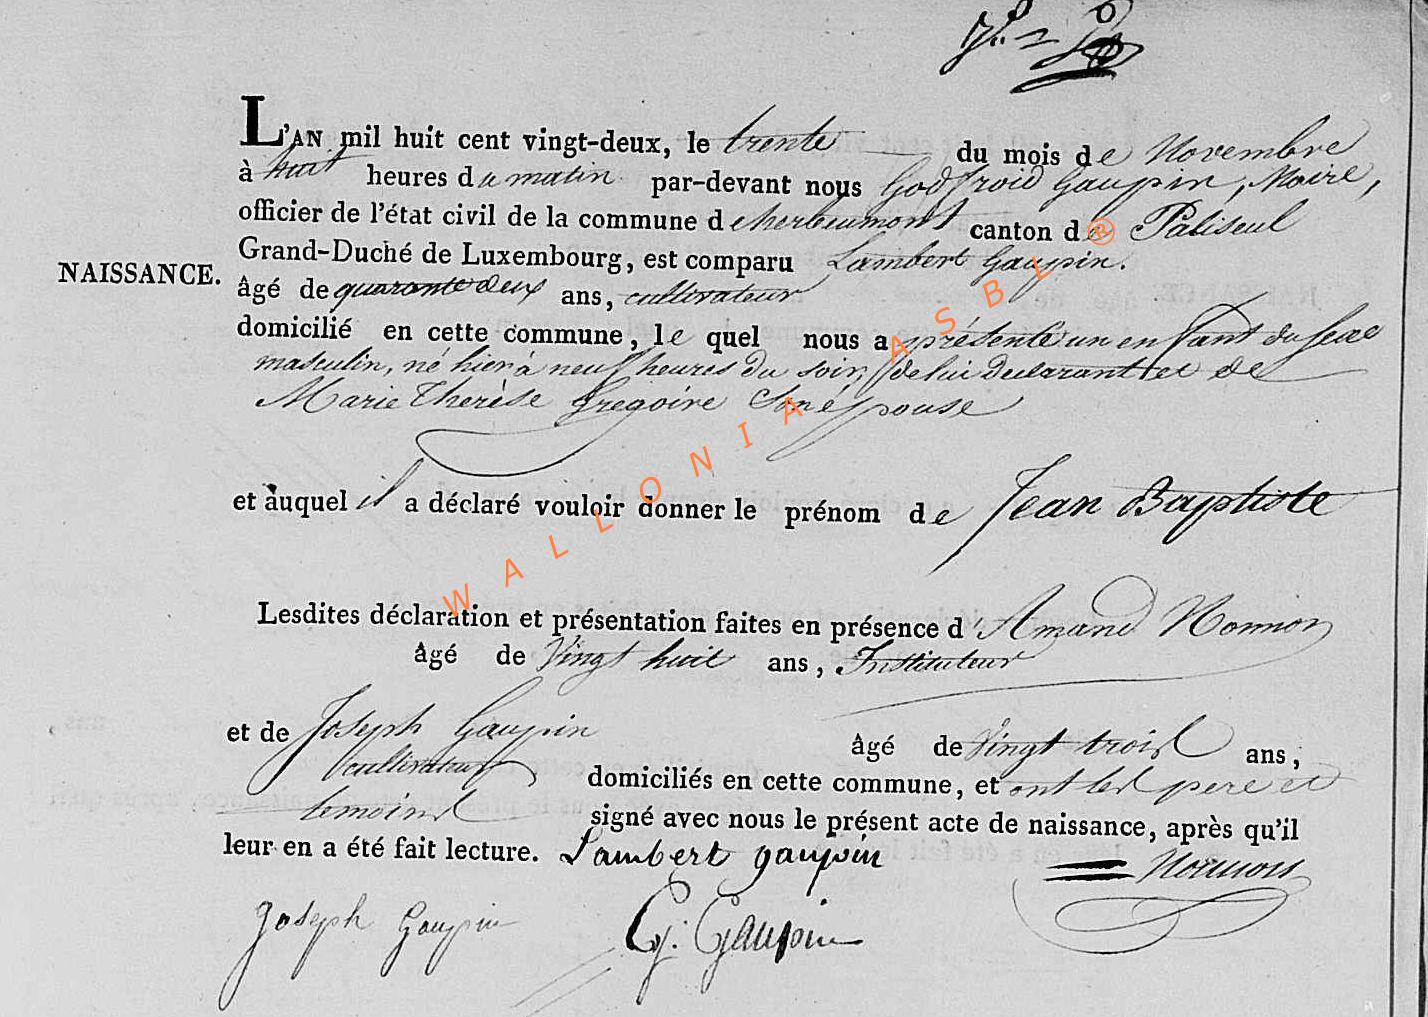 L'AN mil huit cent vingt-deux, le trente du mois de Novembre
à huit heures du matin par-devant nous Godfroid Gaupin, Maire,
officier de l'état civil de la commune d'herbeumont canton de Paliseul
Grand-Duché de Luxembourg, est comparu Lambert Gaupin.
NAISSANCE.
âgé de quarante deux ans, cultivateur
domicilié en cette commune, le quel nous a présenté un enfant du sexe
masculin, né hier à neuf heures du soir, de lui declarant et de
Marie Therèse Gregoire son épouse
et auquel il a déclaré vouloir donner le prénom de Jean Baptiste
Lesdites déclaration et présentation faites en présence d'Amand
âgé de Vingt huit ans, Instituteur
et de Joseph Gaupin âgé de Vingt trois ans,
cultivateur domiciliés en cette commune, et ont les pere et
temoins signé avec nous le présent acte de naissance, après qu'il
leur en a été fait lecture. Lambert gaupin
Joseph Gaupin G. Gaupin
WALLONIA ASBL ®